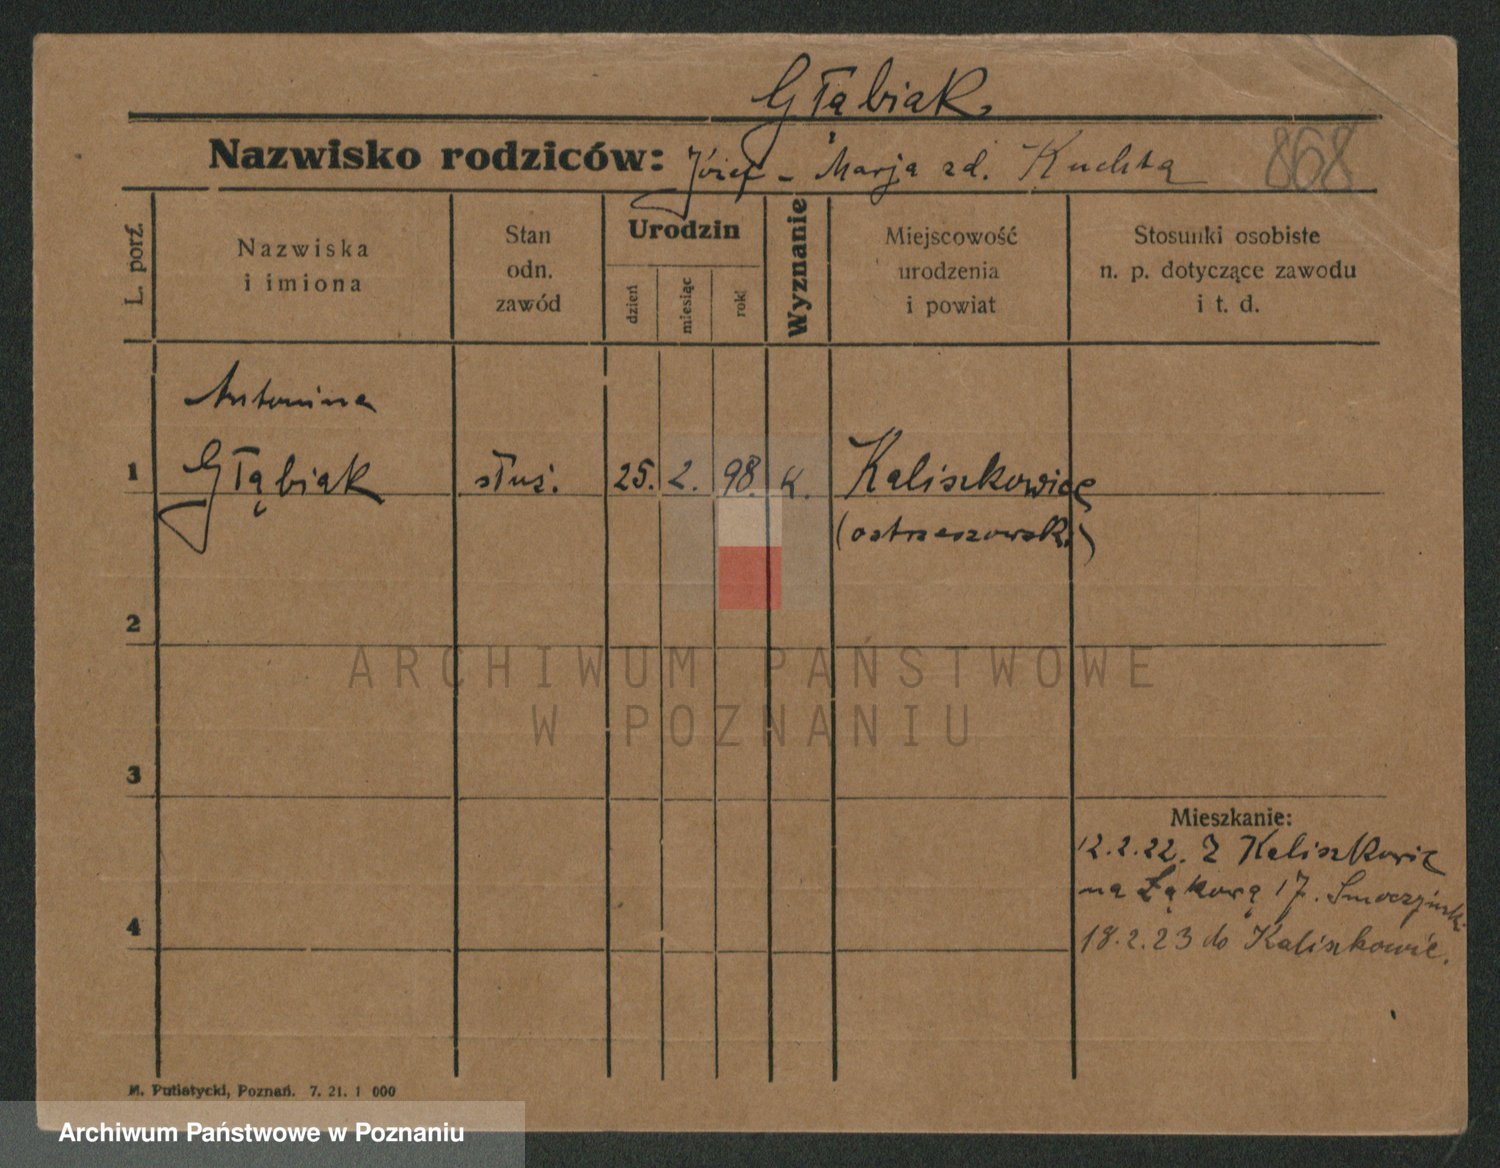 Głąbiak
Nazwisko rodziców: Józef - Marja zd. Kuchta
868
L. porź.
Nazwiska
i imiona
Stan
odn.
zawód
Urodzin
dzień
miesiąc
rok
Wyznanie
Miejscowość
urodzenia
i powiat
Stosunki osobiste
n. p. dotyczące zawodu
i t. d.
Antonina
1 Głąbiak służ. 25. 2. 98. K. Kaliszkowice
(ostrzeszowsk.)
2
3
4
Mieszkanie:
12.2.22. Z Kaliszkowic
na Łąkową 17. Smoczyński
18.2.23 do Kaliszkowic.
M. Putiatycki, Poznań. 7. 21. 1 000
ARCHIWUM PAŃSTWOWE
W POZNANIU
Archiwum Państwowe w Poznaniu